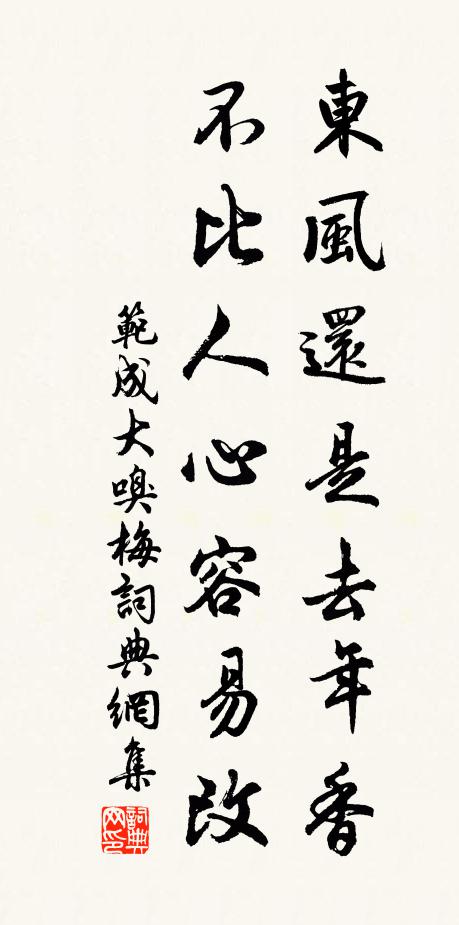 東風還是去年香
不比人心容易改
範成大嗅梅詞典網集
詞典
网印